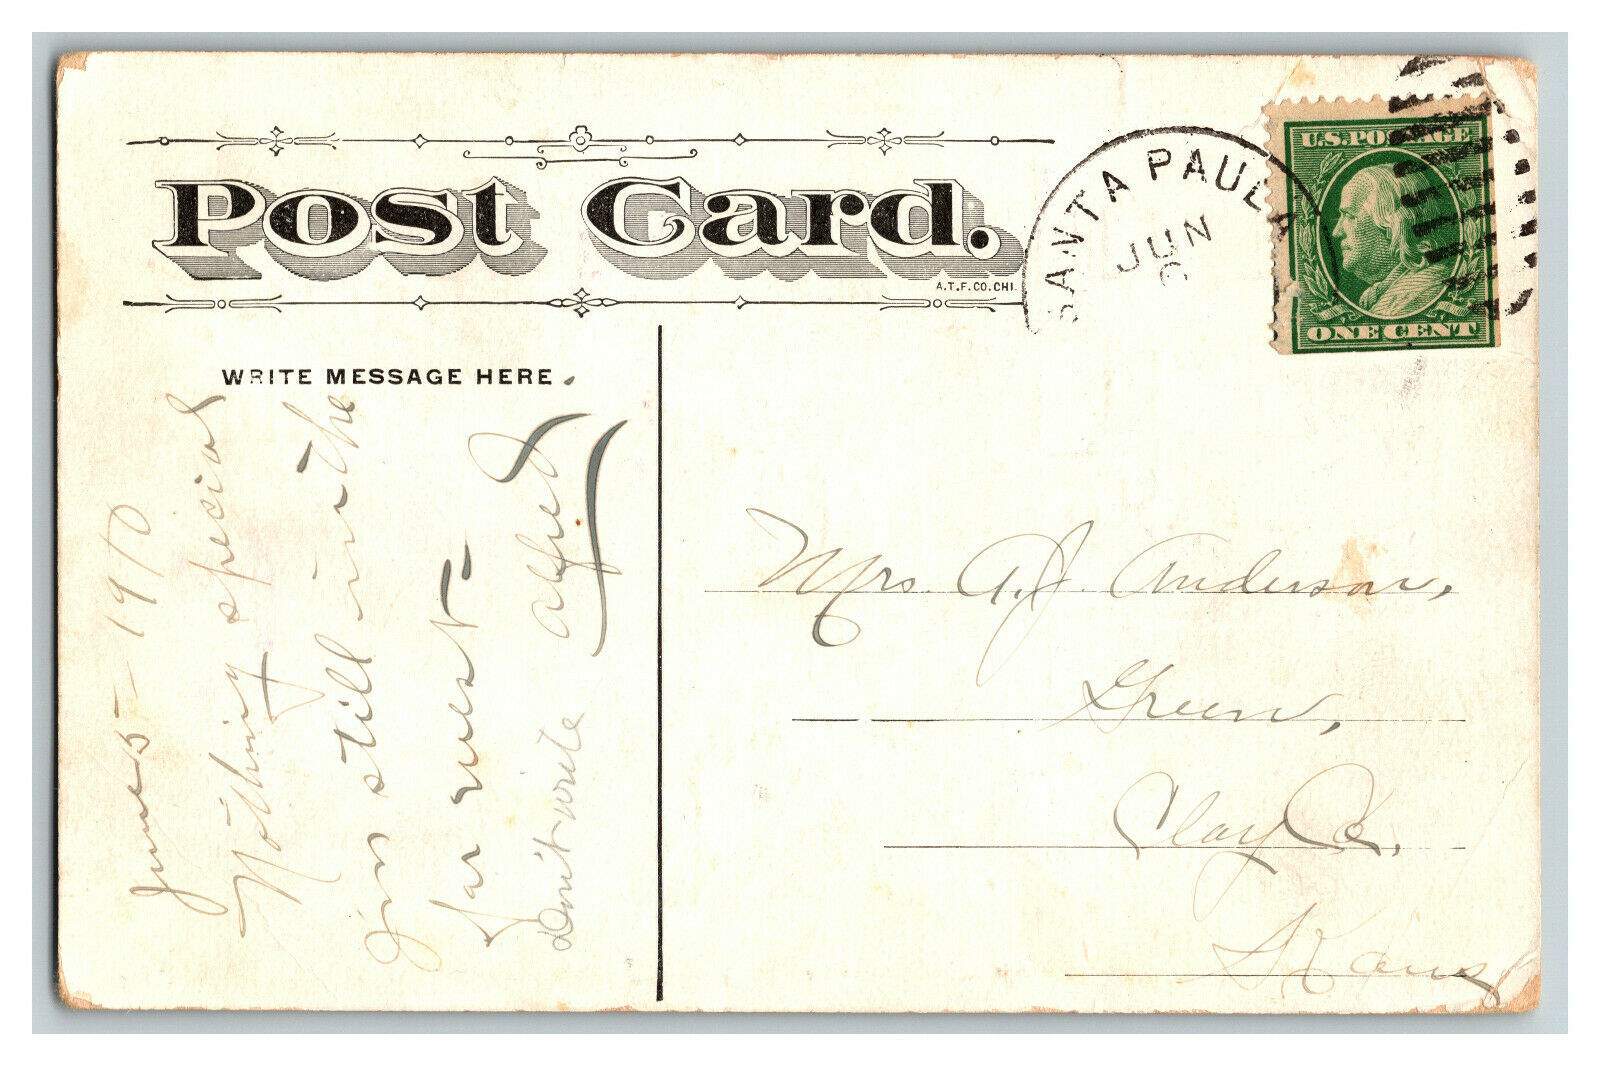 Post Card.
A.T.F.CO.CHI.
SANTA PAULA
JUN
U.S.POSTAGE
ONE CENT
WRITE MESSAGE HERE.
June 5 - 1910
Nothing special
Im still in the
far west =
Don't write Alfred
Mrs. A. J. Anderson,
Green,
Clay Co.,
Kans